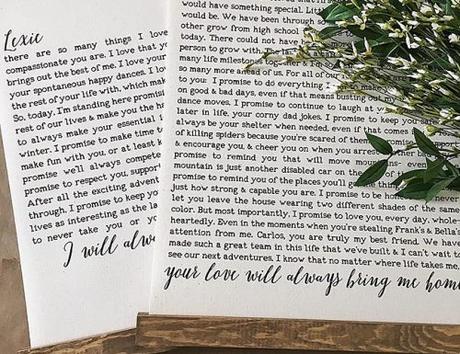 Lexie
there are so many things I love
compassionate you are. I love that yo
brings out the best of me. I love your
your spontaneous happy dances. I love
the rest of your life with, which mak
So, today, I'm standing here promisin
rest of our lives & make you the ha
to always make your essential
winter. I promise to make time t
make fun with you, or at least k
promise we'll always compet
promise to respect you, suppor
After all the exciting advent
through, I promise to keep yo
lives as interesting as the la
to never take you or yo
I will alwa
would have something special. Littl
would be. We have been through so
other grow from high school
today. There could not have
person to grow with. The
many life milestones together
so many more ahead of us. For all of
to you: I promise to do everything I
on good & bad days, even if that means busting out m
dance moves. I promise to continue to laugh at
later in life, your corny dad jokes. I promise to keep you safe
always be your shelter when needed, even if that comes at the
of killing spiders because you're scared of them. I promise
& encourage you, & cheer you on when you are
promise to remind you that will move mou
mountain is just another disabled car on the
promise to remind you of the places you'll
just how strong & capable you are. I promise to be hone
let you leave the house wearing two different shades of the same
color. But most importantly, I promise to love you, every day, whole-
heartedly. Even in the moments when you're stealing Frank's & Bella's
attention from me. Carlos, you are truly my best friend. We have
made such a great team in this life that we've built & I can't wait to
see our next adventures. I know that no matter where life takes me,
your love will always bring me home